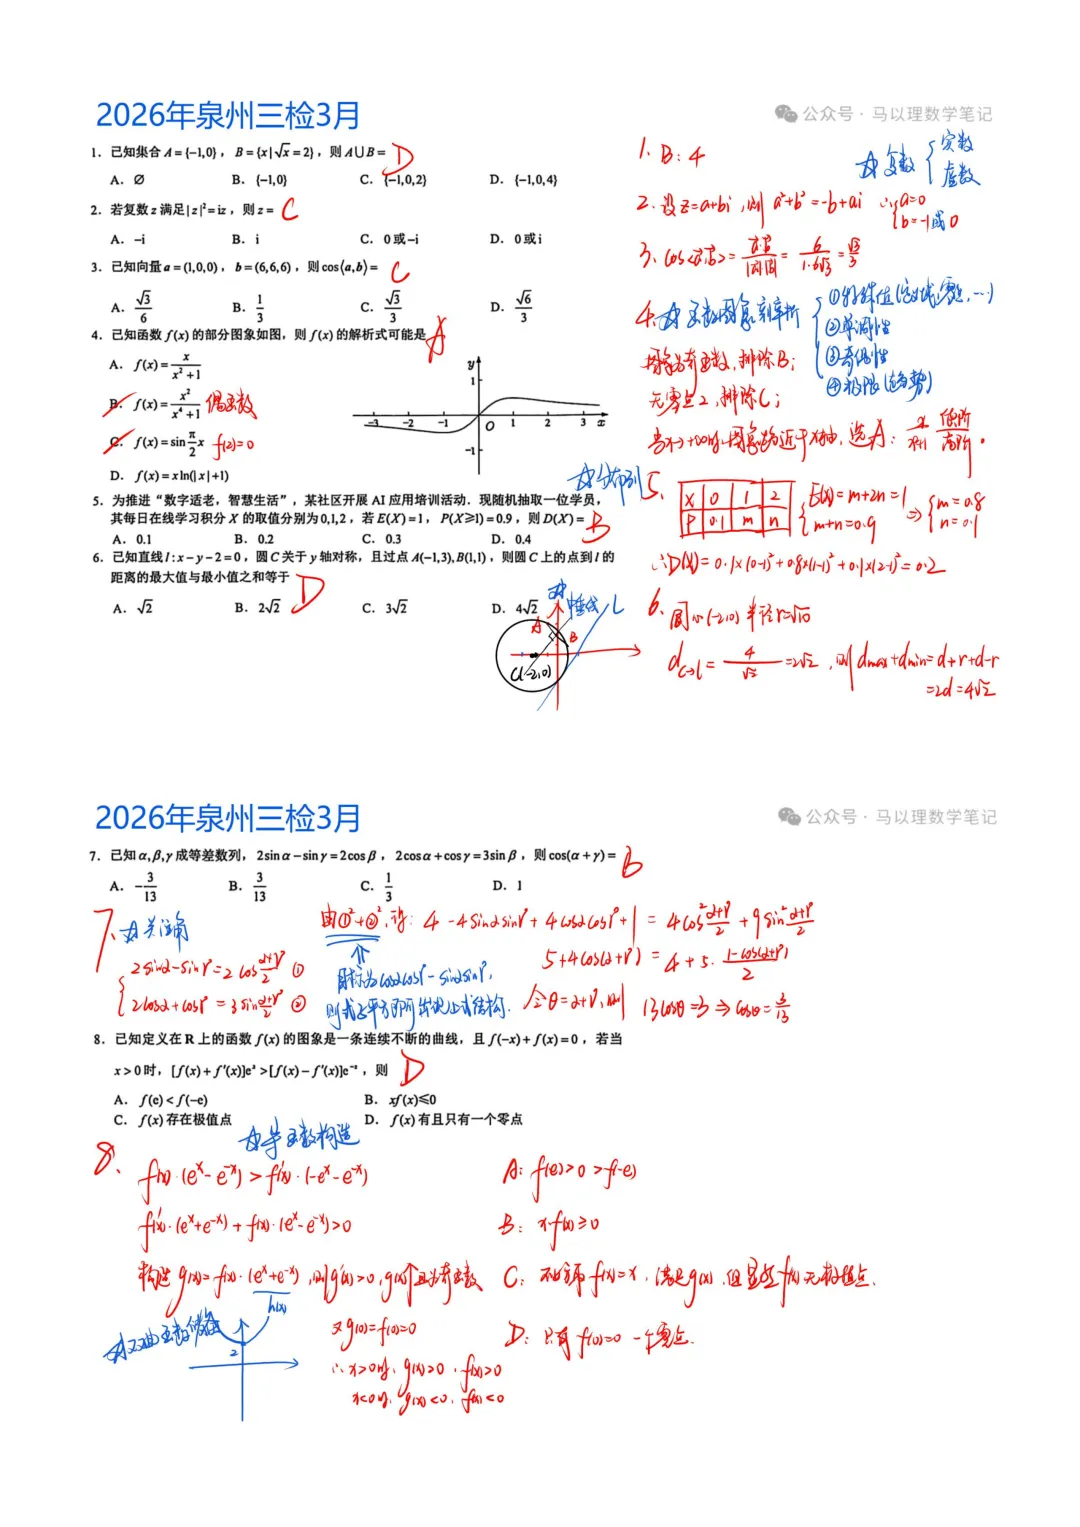 2026年泉州三检3月
公众号 · 马以理数学笔记
1. 已知集合 A={-1,0}，B={x|√x=2}，则 A∪B= D
A. ∅ B. {-1,0} C. {-1,0,2} D. {-1,0,4}
2. 若复数 z 满足|z|²=iz，则 z= C
A. -i B. i C. 0或-i D. 0或i
3. 已知向量 a=(1,0,0)，b=(6,6,6)，则 cos⟨a,b⟩= C
A. √3/6 B. 1/3 C. √3/3 D. √6/3
4. 已知函数 f(x) 的部分图象如图，则 f(x) 的解析式可能是 A
A. f(x)=x/(x²+1)
B. f(x)=x²/(x⁴+1) 偶函数
C. f(x)=sin π/2 x f(2)=0
D. f(x)=xln(|x|+1)
y 1 -3 -2 -1 O 1 2 3 x -1
5. 为推进“数字适老，智慧生活”，某社区开展 AI 应用培训活动. 现随机抽取一位学员，
其每日在线学习积分 X 的取值分别为 0,1,2，若 E(X)=1，P(X≥1)=0.9，则 D(X)= B
A. 0.1 B. 0.2 C. 0.3 D. 0.4
6. 已知直线 l: x-y-2=0，圆 C 关于 y 轴对称，且过点 A(-1,3),B(1,1)，则圆 C 上的点到 l 的
距离的最大值与最小值之和等于 D
A. √2 B. 2√2 C. 3√2 D. 4√2
中垂线 L
A B
C(-2,0)
1. B: 4
复数 { 实数 虚数
2. 设z=a+bi，则 a²+b²=-b+ai ∴{a=0 b=-1或0
3. cos<a,b>= a·b/|a||b| = 6/1·6√3 = √3/3
4. 函数图象刻辛析 { ①特殊值(定义域,零点,…)
②单调性
③奇偶性
④极限(趋势)
图象为奇函数，排除B；
无零点2，排除C；
当x→+∞时，图象趋近于x轴，选A：x/x²+1 低阶/高阶.
分布列
5. X 0 1 2
P 0.1 m n
{E(X)=m+2n=1 m+n=0.9 ⇒ {m=0.8 n=0.1
∴D(X)=0.1×(0-1)²+0.8×(1-1)²+0.1×(2-1)²=0.2
6. 圆心(-2,0) 半径r=√10
d_C→l = 4/√2 =2√2，则 dmax+dmin=d+r+d-r
=2d=4√2
2026年泉州三检3月
公众号 · 马以理数学笔记
7. 已知 α,β,γ 成等差数列，2sinα-sinγ=2cosβ，2cosα+cosγ=3sinβ，则 cos(α+γ)= B
A. -3/13 B. 3/13 C. 1/3 D. 1
7. 关注角
{2sinα-sinγ=2cos α+γ/2 ①
2cosα+cosγ=3sin α+γ/2 ②
由①²+②²，得：4-4sinαsinγ+4cosαcosγ+1=4cos² α+γ/2+9sin² α+γ/2
5+4cos(α+γ)=4+5· 1-cos(α+γ)/2
目标为cosαcosγ-sinαsinγ，
令θ=α+γ，则 13cosθ=3 ⇒ cosθ=3/13
8. 已知定义在 R 上的函数 f(x) 的图象是一条连续不断的曲线，且 f(-x)+f(x)=0，若当
x>0 时，[f(x)+f′(x)]eˣ>[f(x)-f′(x)]e⁻ˣ，则 D
A. f(e)<f(-e) B. xf(x)≤0
C. f(x) 存在极值点 D. f(x) 有且只有一个零点
导函数构造
8. f(x)·(eˣ-e⁻ˣ)>f′(x)·(-eˣ-e⁻ˣ)
f′(x)·(eˣ+e⁻ˣ)+f(x)·(eˣ-e⁻ˣ)>0
构造 g(x)=f(x)·(eˣ+e⁻ˣ)，则g′(x)>0，g(x)↑且为奇函数
h(x)
双曲函数储备
2
又g(0)=f(0)=0
∴x>0时，g(x)>0，f(x)>0
x<0时，g(x)<0，f(x)<0
A: f(e)>0>f(-e)
B: x·f(x)≥0
C: 不妨令f(x)=x，满足g(x)，但显然f(x)无极值点.
D: 只有f(0)=0 一个零点.